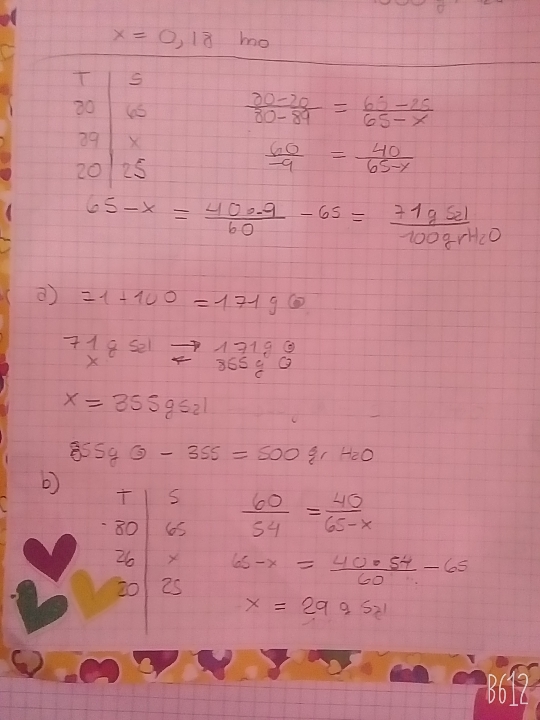 x = 0,18 mo
T | S
80 | 65
89 | x
20 | 25
80-20 / 80-89 = 65-25 / 65-x
60 / -9 = 40 / 65-x
65-x = 40·-9 / 60 - 65 = 71g szl / 100gr H2O
a) 71+100 = 171g
71g szl → 171g
x ← 855g
x = 355g szl
855g - 355 = 500 gr H2O
b)
T | S
80 | 65
26 | x
20 | 25
60 / 54 = 40 / 65-x
65-x = 40·54 / 60 - 65
x = 29 g szl
B612